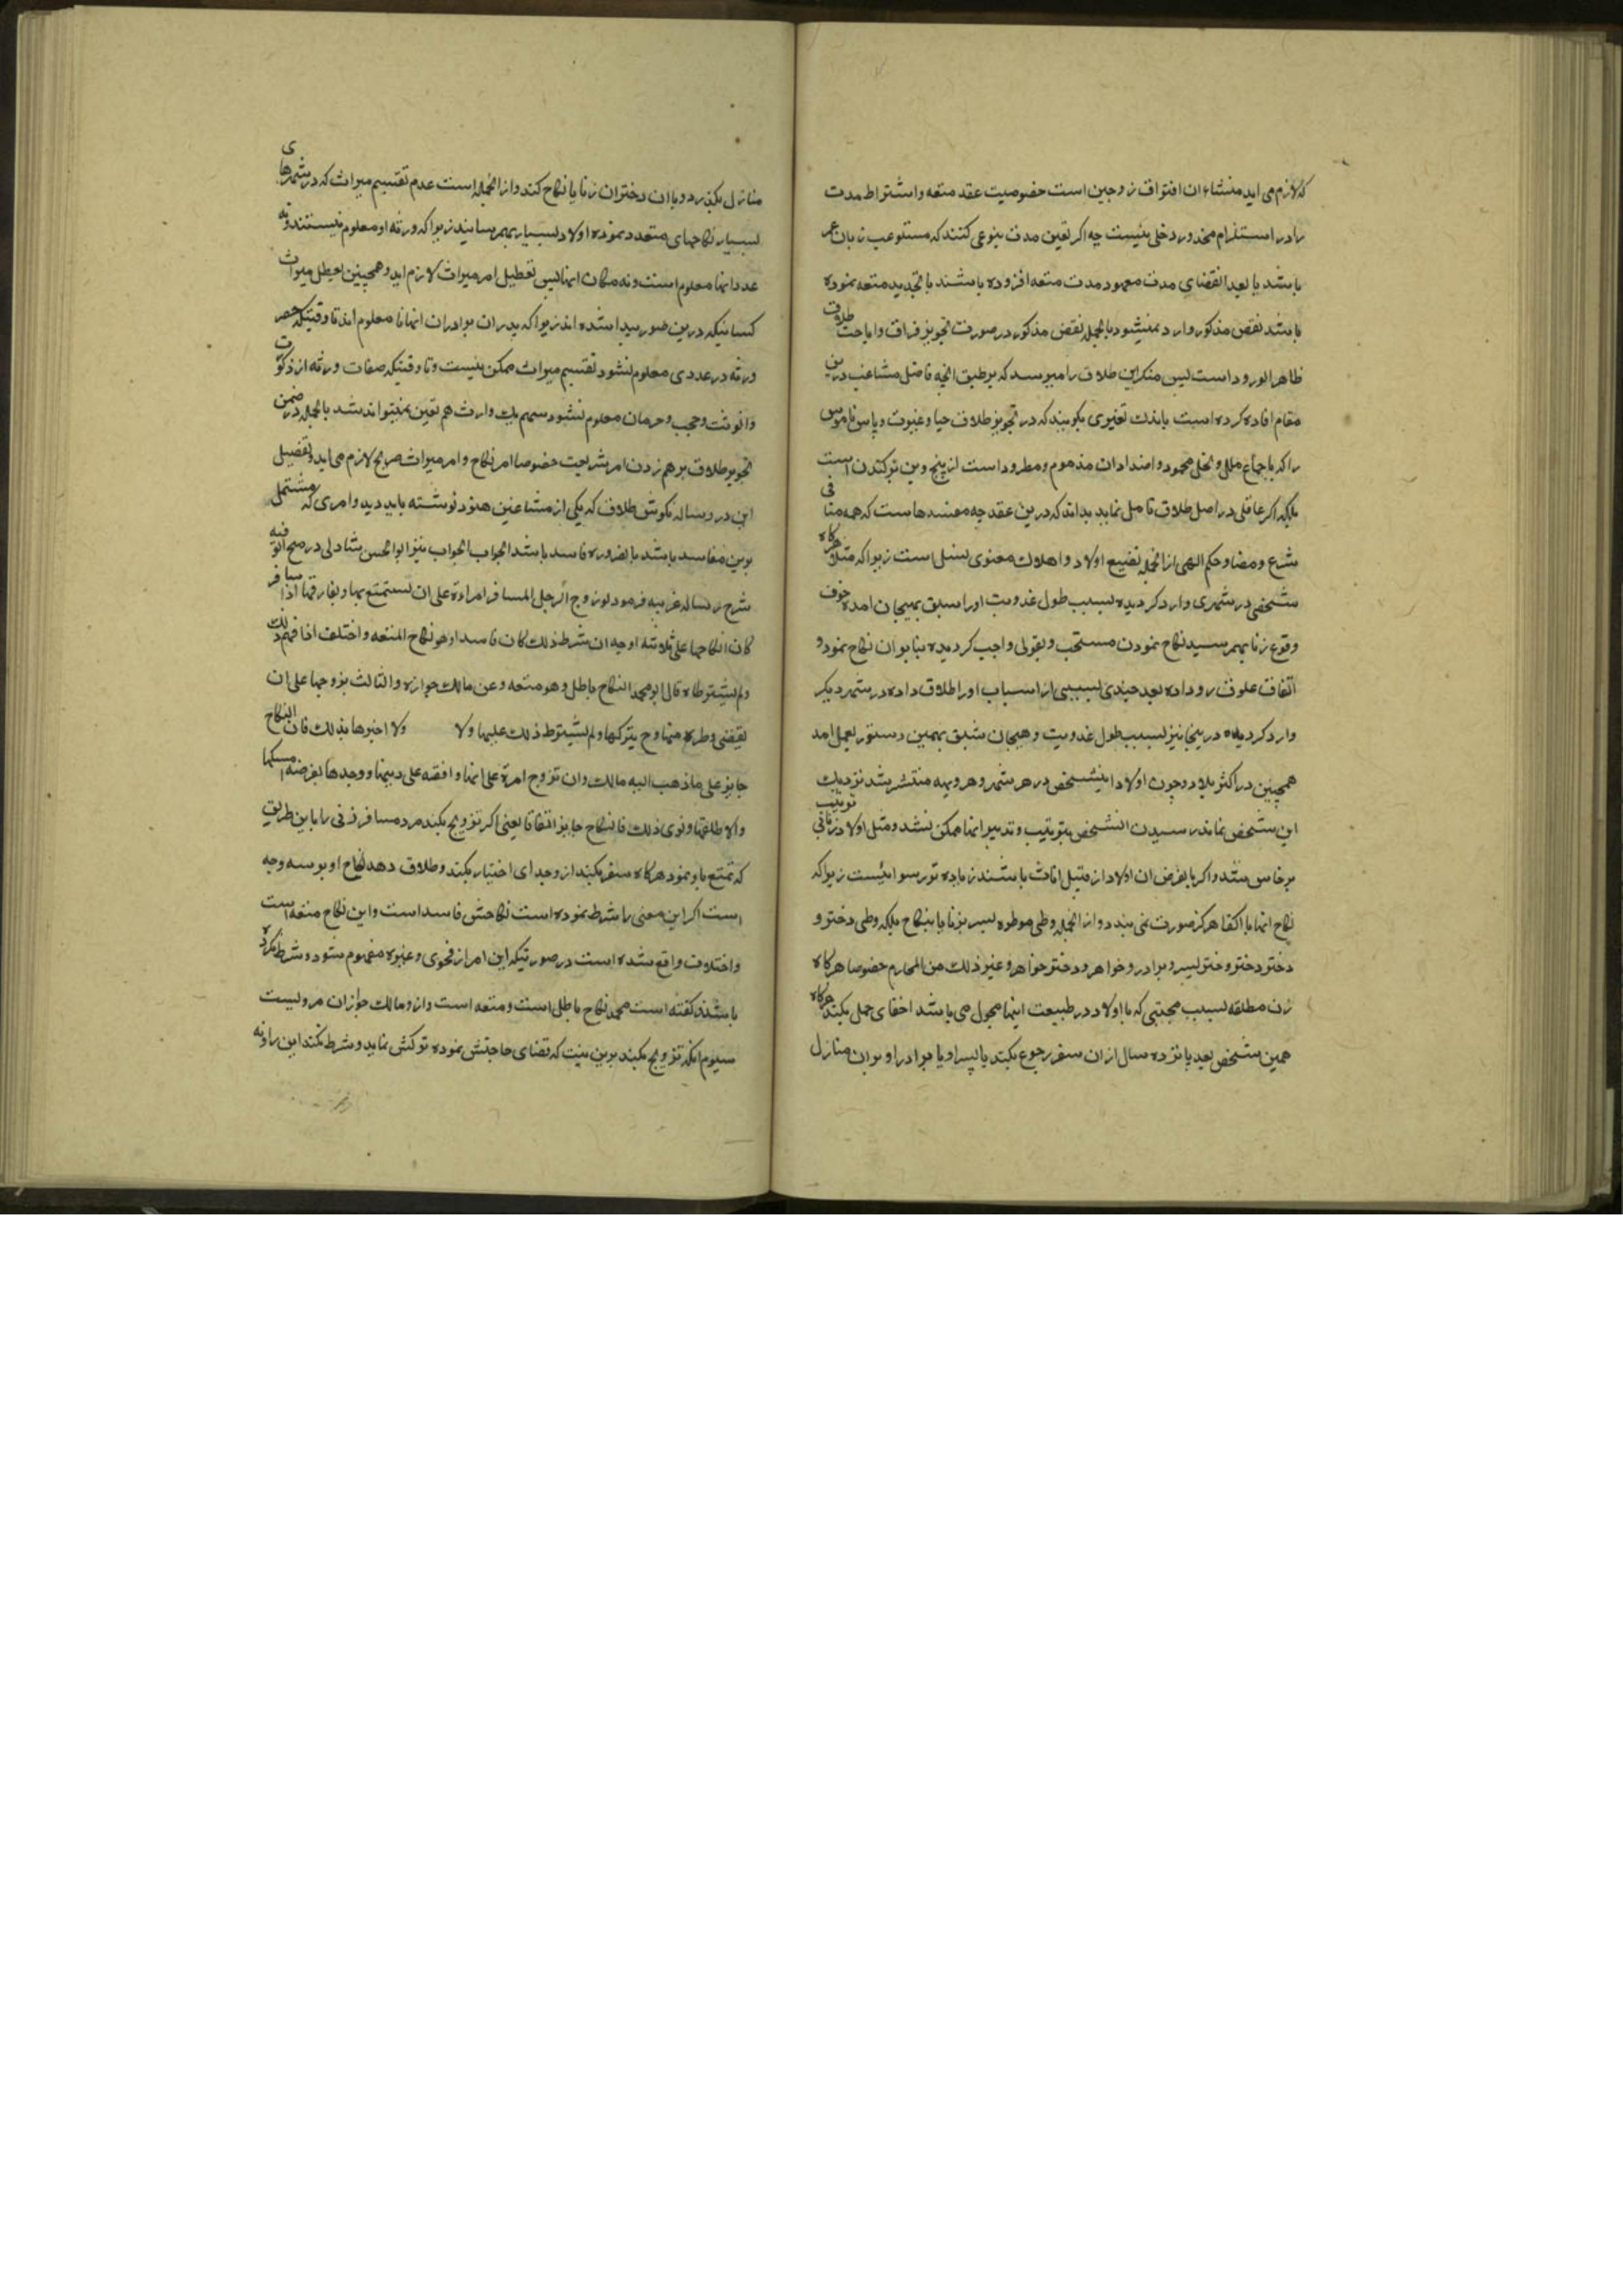 که لازم می اید منشاء ان افتراق زوجین است خصوصیت عقد متعه و اشتراط مدت
را در استلزام محذور دخلی نیست چه اکر تعین مدت بنوعی کنند که مستوعب زمان عمر
باشد یا بعد انقضای مدت معهود مدت متعه افزوده باشند یا تجدید متعه نموده
باشد نقض مذکور وارد نمیشود بالجمله نقض مذکور در صورت تجویز فراق و اباحت طلاق
ظاهر الورود است پس منکرین طلاق را میرسد که بر طبق انچه فاضل مشاغب درین
مقام افاده کرده است باندک تغیری بکویند که در تجویز طلاق حیا و غیرت و پاس ناموس
را که باجماع ملل و نحل محمود و اضداد ان مذموم و مطرود است از بیخ و بن برکندن است
بلکه اکر عاقلی در اصل طلاق تامل نماید بداند که درین عقد چه مفسدهاست که همه منافی
شرع و مضاد حکم الهی از انجمله تضیع اولاد و اهلاک معنوی نسل است زیرا که مثلا هرکاه
شخصی در شهری وارد کردیده بسبب طول غدوبت او را سبق بهیجان امده خوف
وقوع زنا بهم رسید نکاح نمودن مستحب و بقولی واجب کردیده بنا بر ان نکاح نمود و
اتفاق علوق رو داده بعد چندی بسببی از اسباب او را طلاق داده در شهر دیکر
وارد کردیده در ینجا نیز بسبب طول غدوبت و هیجان شبق بهمین دستور بعمل امد
همچنین در اکثر بلاد و چون اولاد اینشخص در هر شهر و هر دیهه منتشر شد نزدیک
این شخص نماند رسیدن اینشخص بتربیت و تدبیر انها ممکن نشد و مثل اولاد زنا بی تربیت
برخاستند و اکر بالفرض ان اولاد از قبیل اناث باشند زیاده تر رسوائیست زیرا که
نکاح انها با اکفا هرکز صورت نمی بندد و از انجمله وطی موطوه پسر بزنا یا بنکاح بلکه وطی دختر و
دختر دختر و دختر پسر و برادر و خواهر و دختر خواهر و غیر ذلک من المحارم خصوصا هرکاه
زن مطلقه بسبب محبتی که با اولاد در طبیعت اینها مجبول می باشد اخفای حمل بکند هرکاه
همین شخص بعد پانزده سال از ان سفر رجوع بکند یا پسر او یا برادر او بران منازل
منازل بکذرد و با ان دختران زنا یا نکاح کند و از انجمله است عدم تقسیم میراث که در شهرهای
بسیار نکاحهای متعدد نموده اولاد بسیار بهم رسانید زیرا که ورثه او معلوم نیستند و نه
عدد انها معلوم است و نه مکان انها پس تعطیل امر میراث لازم اید و همچنین تعطل میراث
کسانیکه درین صور پیدا شده اند زیرا که پدران برادران انها نا معلوم اند تا وقتیکه حصر
ورثه در عددی معلوم نشود تقسیم میراث ممکن نیست و تا وقتیکه صفات ورثه از ذکورت
و انوثت و حجب و حرمان معلوم نشود سهم یک وارث هم تعین نمیتواند شد بالجمله در ضمن
تجویز طلاق برهم زدن امر شریعت خصوصا امر نکاح و امر میراث صریح لازم می اید و تفصیل
این در رساله نکوهش طلاق که یکی از مشاغبین هنود نوشته باید دید و امری که مشتمل
برین مفاسد باشد بالضرورة فاسد باشد الجواب الجواب نیز ابوالحسن شاذلی در منح الوفیه
شرح رساله غریبه فرمود لو زوج الرجل المسافر امراءة علی ان یستمتع بها و یفارقها اذا سافر
کان انکاحها علی ثلاثة اوجه ان شرط ذلک کان فاسدا و هو نکاح المتعه و اختلف اذا فهم ذلک
ولم یشترطاه قال ابو محمد النکاح باطل و هو متعه و عن مالک جوازه و الثالث یزوجها علی ان
یقضی وطره منها و ح یترکها ولم یشترط ذلک علیها ولا ولا اخبرها بذلک فان النکاح
جایز علی ما ذهب الیه مالک وان تزوج امرة علی انها وافقه علی دینها و وجدها بغرضه امسکها
والا طلقها و نوی ذلک فالنکاح جایز اتفاقا یعنی اکر تزویج بکند مرد مسافر زنی را باین طریق
که تمتع باو نمود هرکاه سفر بکند از وجدای اختیار بکند و طلاق دهد نکاح او بر سه وجه
است اکر این معنی را شرط نموده است نکاحش فاسد است و این نکاح متعه است
و اختلاف واقع شده است در صورتیکه این امر از فحوی و غیره مفهوم شود و شرط نکرده
باشند کفته است محمد نکاح باطل است و متعه است و از و مالک جواز ان مرویست
سیوم انکه تزویج بکند برین نیت که قضای حاجتش نموده ترکش نماید و شرط نکند این را و نه